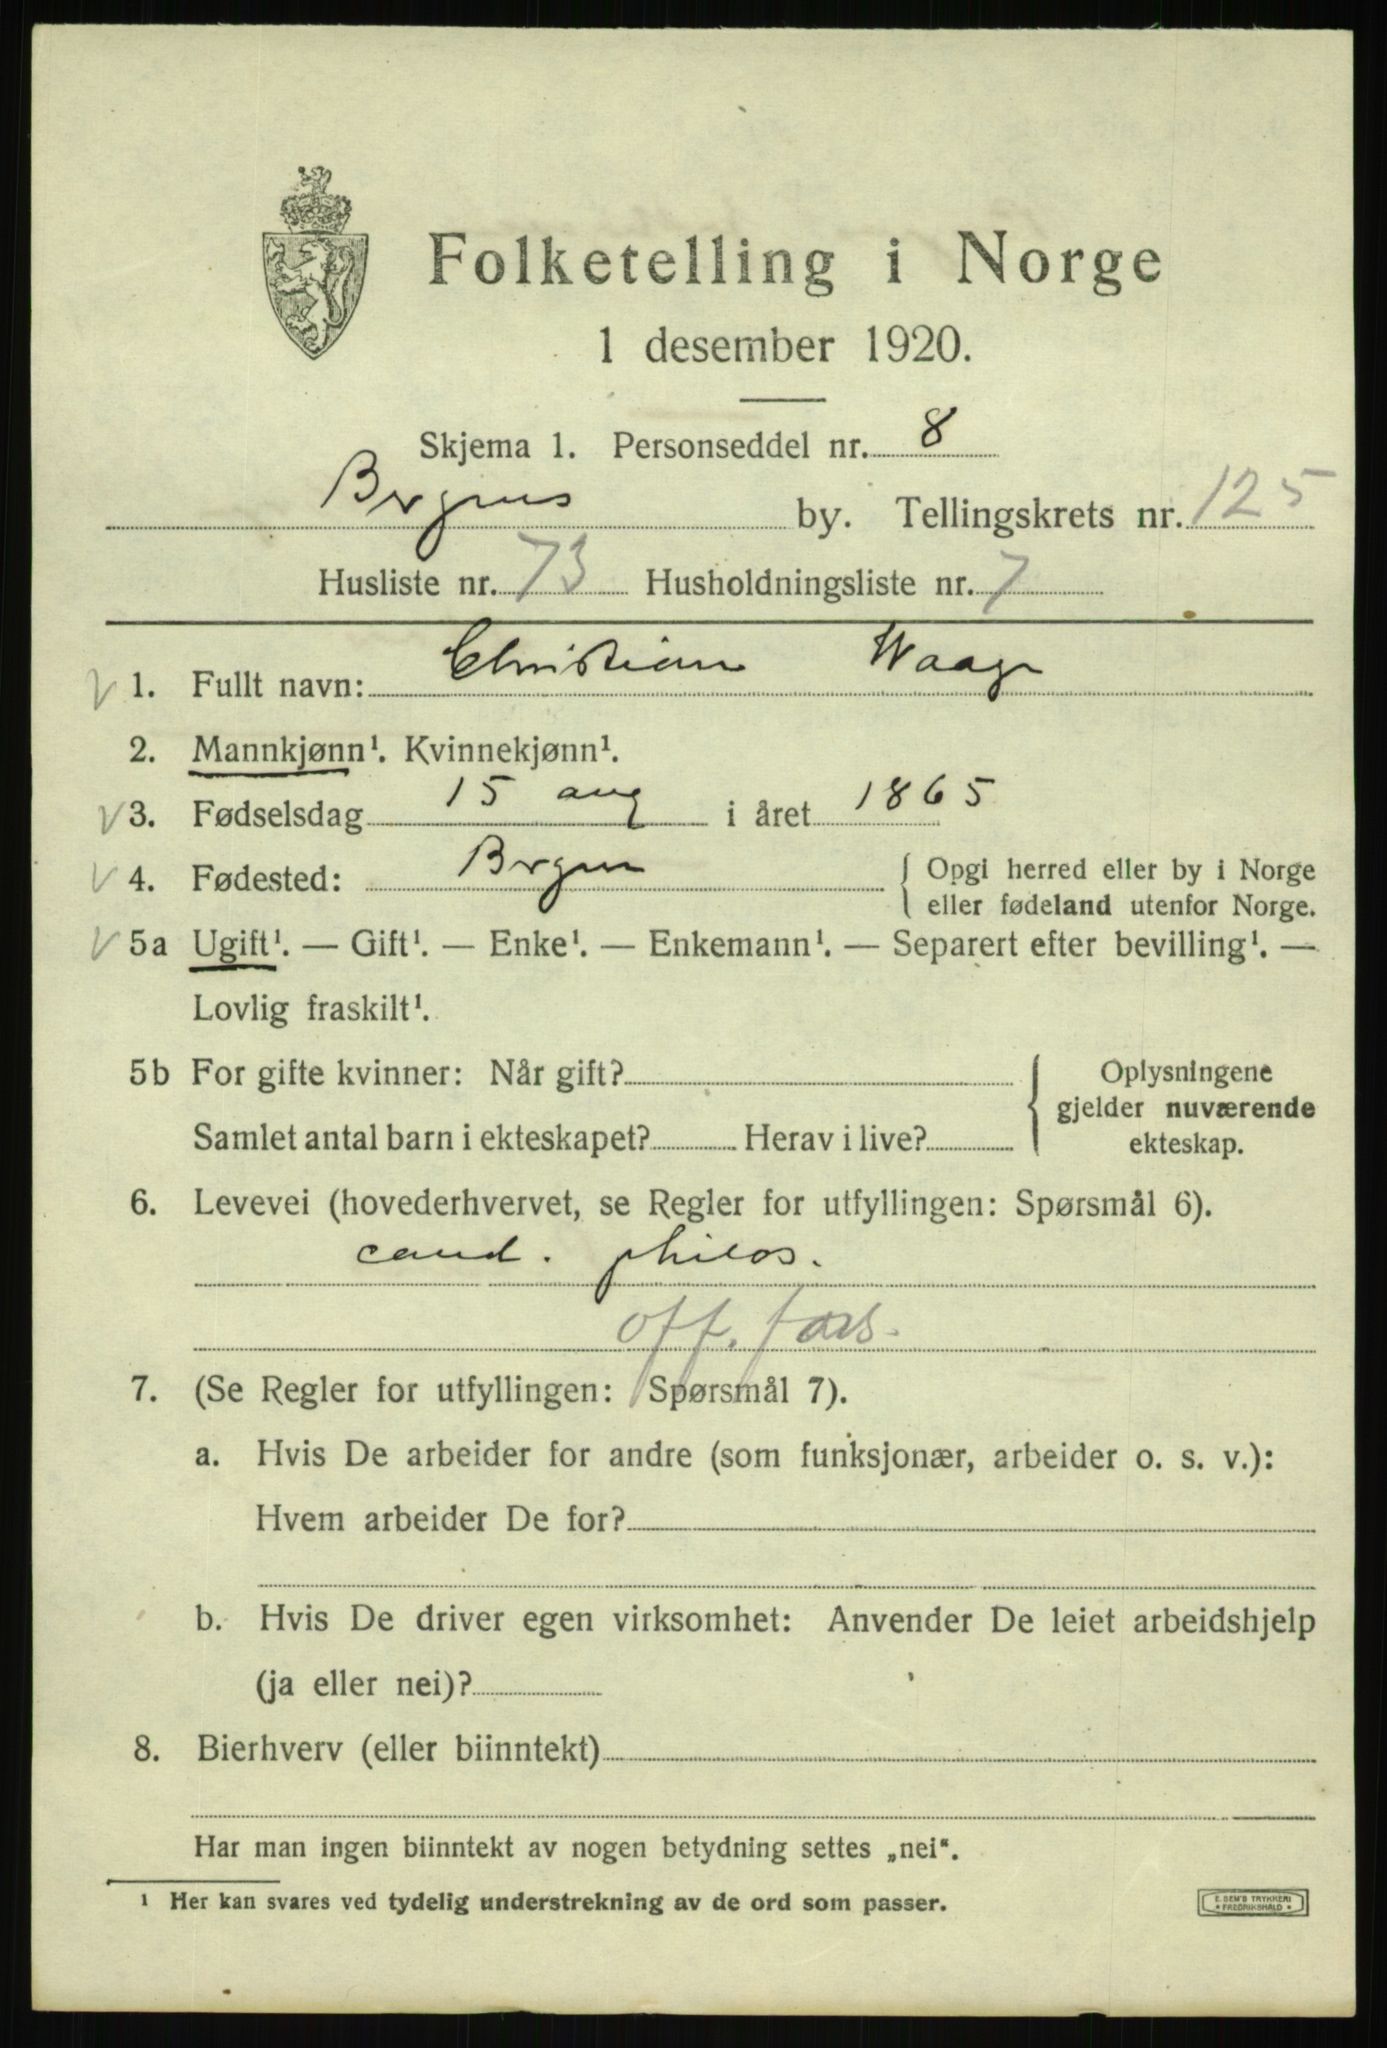 Folketelling i Norge
1 desember 1920.
Skjema 1. Personseddel nr. 8
Bergens by. Tellingskrets nr. 125
Husliste nr. 73 Husholdningsliste nr. 7
1. Fullt navn: Christian Waage
2. Mannkjønn¹. Kvinnekjønn¹.
3. Fødselsdag 15 aug i året 1865
4. Fødested: Bergen { Opgi herred eller by i Norge
eller fødeland utenfor Norge.
5a Ugift¹. — Gift¹. — Enke¹. — Enkemann¹. — Separert efter bevilling¹. —
Lovlig fraskilt¹.
5b For gifte kvinner: Når gift? { Oplysningene
gjelder nuværende
Samlet antal barn i ekteskapet? Herav i live? ekteskap.
6. Levevei (hovederhvervet, se Regler for utfyllingen: Spørsmål 6).
cand. philos.
off. fors.
7. (Se Regler for utfyllingen: Spørsmål 7).
a. Hvis De arbeider for andre (som funksjonær, arbeider o. s. v.):
Hvem arbeider De for?
b. Hvis De driver egen virksomhet: Anvender De leiet arbeidshjelp
(ja eller nei)?
8. Bierhverv (eller biinntekt)
Har man ingen biinntekt av nogen betydning settes „nei“.
¹ Her kan svares ved tydelig understrekning av de ord som passer.
E. SEM'S TRYKKERI
* FREDRIKSHALD *